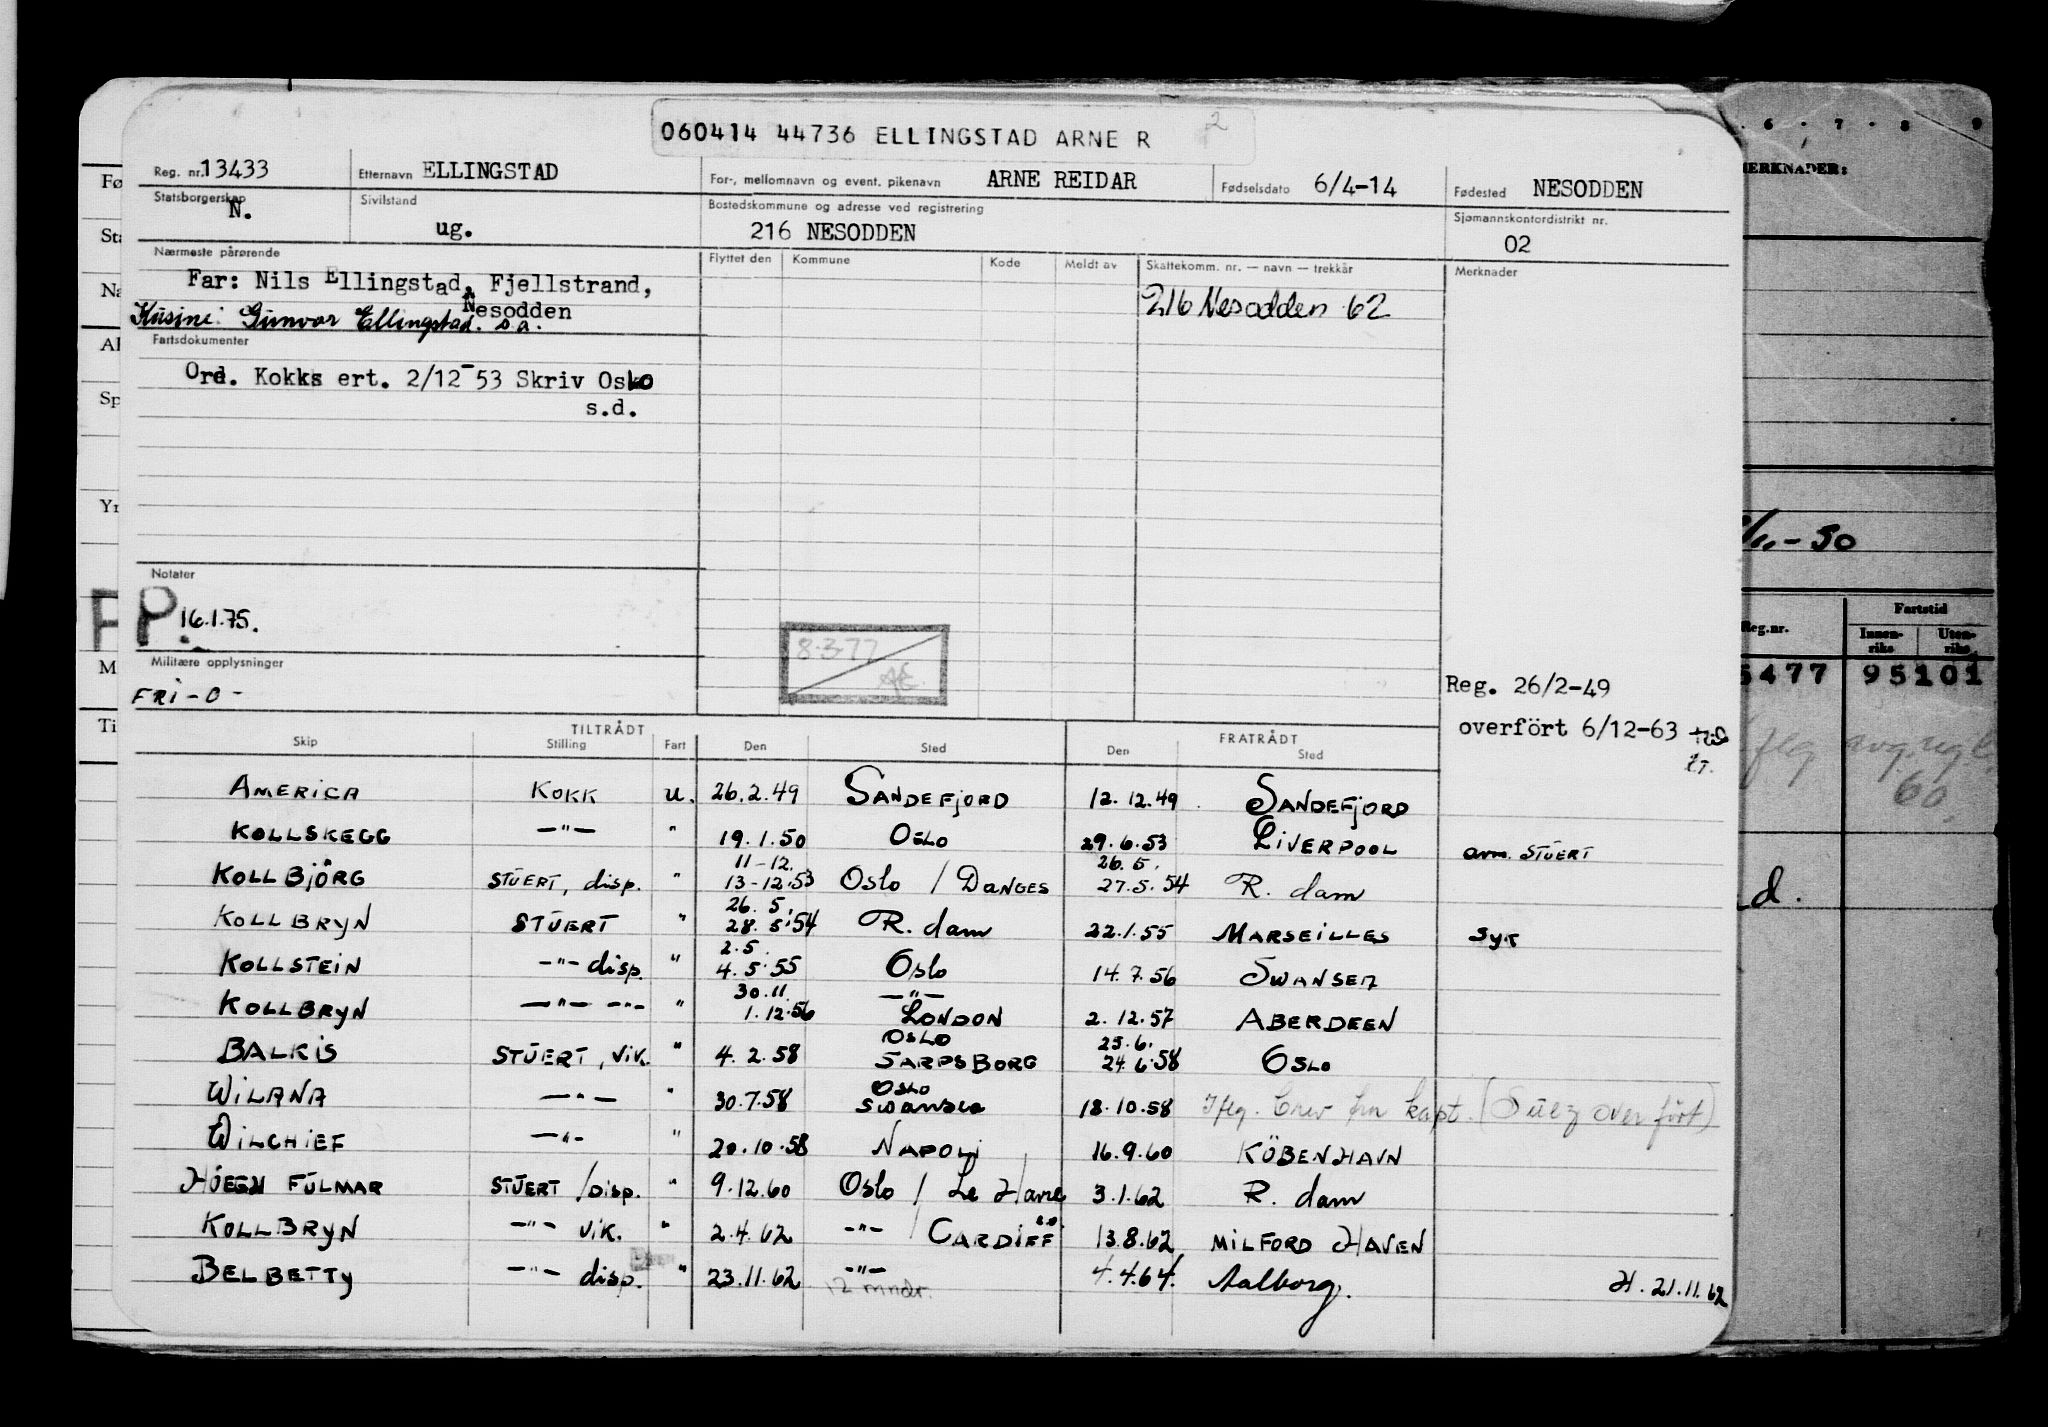 060414 44736 ELLINGSTAD ARNE R 2
Reg. nr. 13433 Etternavn ELLINGSTAD For-, mellomnavn og event. pikenavn ARNE REIDAR Fødselsdato 6/4-14 Fødested NESODDEN
Statsborgerskap N. Sivilstand ug. Bostedskommune og adresse ved registrering 216 NESODDEN Sjømannskontordistrikt nr. 02
Nærmeste pårørende Flyttet den Kommune Kode Meldt av Skattekomm. nr. — navn — trekkår Merknader
Far: Nils Ellingstad, Fjellstrand,
Nesodden
216 Nesodden 62
Kusine: Gunvor Ellingstad. s.a.
Fartsdokumenter
Ord. Kokks ert. 2/12-53 Skriv Oslo
s.d.
Notater
P. 16.1.75.
8-3-77
Militære opplysninger
FRI - O -
Reg. 26/2-49
overfört 6/12-63
TILTRÅDT FRATRÅDT
Skip Stilling Fart Den Sted Den Sted
AMERICA KOKK u. 26.2.49 SANDEFJORD 12.12.49 SANDEFJORD
KOLLSKEGG —"— " 19.1.50 OSLO 29.6.53 LIVERPOOL avm. STUERT
11-12. 26.5.
KOLLBJÖRG STUERT, disp. " 13-12.53 Oslo / DANGES 27.5.54 R. dam
26.5.
KOLLBRYN STUERT " 28.5.54 R. dam 22.1.55 MARSEILLES Syk
2.5.
KOLLSTEIN —"— disp. " 4.5.55 Oslo 14.7.56 SWANSEA
30.11. —"—
KOLLBRYN —"— —"— " 1.12.56 LONDON 2.12.57 ABERDEEN
OSLO 23.6.
BALKIS STUERT, VIK. " 4.2.58 SARPSBORG 24.6.58 OSLO
OSLO
WILANA —"— " 30.7.58 SWANSEA 18.10.58 Iflg. brev fra kapt. (Suez overfört)
WILCHIEF —"— " 20.10.58 NAPOLI 16.9.60 KÖBENHAVN
HÖEGH FULMAR STUERT / DISP. " 9.12.60 Oslo / Le Havre 3.1.62 R. dam
KOLLBRYN —"— VIK. " 2.4.62 —"— / CARDIFF 13.8.62 MILFORD HAVEN
BELBETTY —"— disp. " 23.11.62 —"— 4.4.64. Aalborg. H. 21.11.62
12 mndr.
Fø
Sta
Na
Al
Sp
Yr
P
M
Ti
6 · 7 · 8 9
MERKNADER:
- 50
Fartstid
Reg.nr. Innen-riks Uten-riks
5477 95101
60
d.